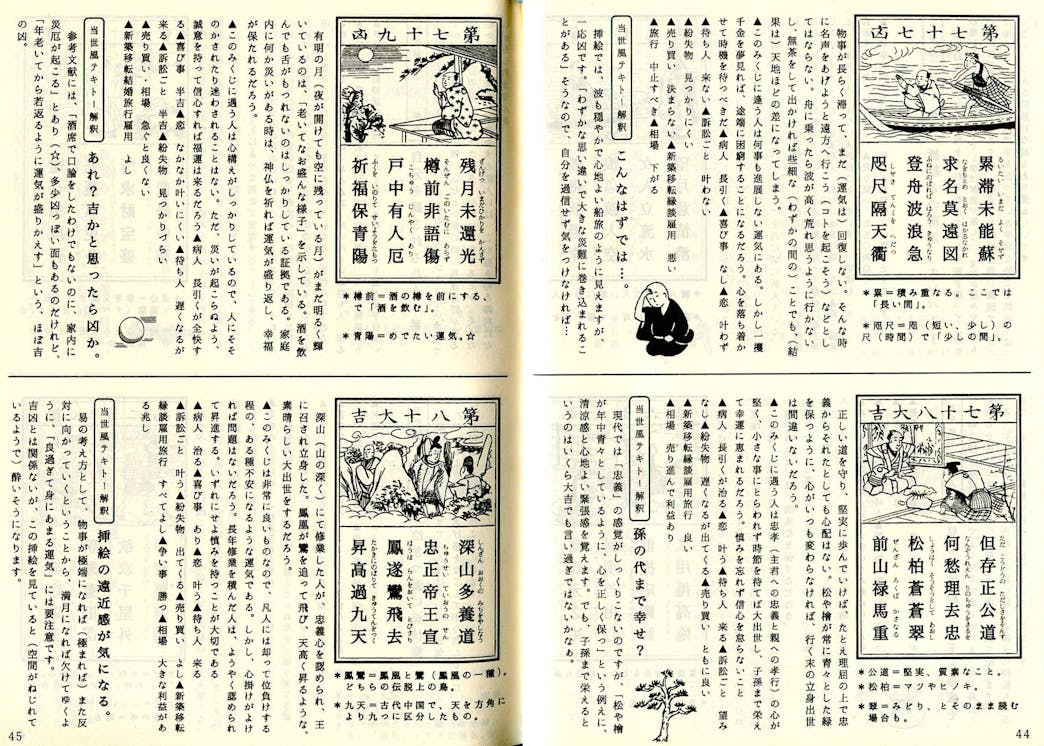 第七十七凶
累滞未能蘇
るいたい いまだ よく そせず
求名莫遠図
なをもとめ とおく はかるなかれ
登舟波浪急
ふねにのぼれば はろう きゅうなり
咫尺隔天衢
しせき てんくを へだつ
＊累＝積み重なる。ここでは
「長い間」。
＊咫尺＝咫（短い、少し）の
尺（時間）で「少しの間」。
物事が長らく滞って、まだ（運気は）回復しない。そんな時
に名声をあげようと遠方へ行こう（コトを起こそう）などとし
てはならない。舟に乗ったら波が高く荒れ思うように行かない
し、無茶をして出かければ些細な（わずかの間の）ことでも、（結
果は）天地ほどの差になってしまう。
▲このみくじに逢う人は何事も進展しない運気にある。しかし一攫
千金を夢見れば、途端に困窮することになるだろう。心を落ち着か
せて時機を待つべきだ▲病人 長引く▲喜び事 なし▲恋 叶わず
▲待ち人 来ない▲訴訟ごと 叶わない
▲紛失物 見つかりにくい
▲売り買い 決まらない▲新築移転縁談雇用 悪い
▲旅行 中止すべき▲相場 下がる
当世風テキトー解釈
こんなはずでは…
挿絵では、波も穏やかで心地よい船旅のように見えますが、
一応凶です。「わずかな思い違いで大きな災難に巻き込まれるこ
とがある」そうなので、自分を過信せず気をつけなければ…
第七十八大吉
但存正公道
ただしせいこうのみちをそんす
何愁理去忠
なんぞうれえん りのちゅうをさるを
松柏蒼蒼翠
しょうはく そうそうとして あおし
前山禄馬重
ぜんざん ろくば かさなる
＊公道＝堅実、質素なこと。
＊松柏＝マツやヒノキ。
＊翠＝みどり、とそのまま読む
場合も。
正しい道を守り、堅実に歩んでいけば、たとえ理屈の上で忠
義からそれたとしても心配はない。松や檜が常に青々とした緑
を保つように、心がいつも変わらなければ、行く末の立身出世
は間違いないだろう。
▲このみくじに遇う人は忠孝（主君への忠義と親への孝行）の心が
堅く、小さな事にとらわれず時節を待てば大出世し、子孫まで栄え
て幸運に恵まれるだろう。慎み忘れず信心を怠らないこと
▲病人 長引くが治る▲恋 叶う▲待ち人 来る▲訴訟ごと 望み
なし▲紛失物 遅くなるが出てくる▲売り買い ともに良い
▲新築移転縁談雇用旅行 良い
▲相場 売り進んで利益あり
当世風テキトー解釈
孫の代まで幸せ？
現代では「忠義」の感覚がしっくりこないのですが、「松や檜
が年中青々としているように、心を正しく保つ」という例えに、
清涼感と心地よい緊張感を覚えます。でも、子孫まで栄えると
いうのはいくら大吉でも言い過ぎではないかなぁ。
44
第七十九凶
残月未還光
ざんげつ いまだひかりを かえさず
樽前非語傷
そんぜん ごのいたむに あらず
戸中有人厄
こちゅう じんやく あり
祈福保青陽
ふくを いのりて せいようをたもつ
＊樽前＝酒の樽を前にする、
で「酒を飲む」。
＊青陽＝めでたい運気。☆
有明の月（夜が開けても空に残っている月）がまだ明るく輝
いているのは、「老いてなお盛んな様子」を示している。酒を飲
んでも舌がもつれないのはしっかりしている証拠である。家庭
内に何か災いがある時は、神仏を祈れば運気が盛り返し、幸福
が保たれるだろう。
▲このみくじに遇う人は心構えがしっかりしているので、人にそそ
のかされたり迷わされることはない。ただ、災いが起こらぬよう、
誠意を持って信心すれば福運は来るだろう▲病人 長引くが全快す
る▲喜び事 半吉▲恋 なかなか叶いにくい▲待ち人 遅くなるが
来る▲訴訟ごと 半吉▲紛失物 見つかりづらい
▲売り買い・相場 急ぐと良くない
▲新築移転結婚旅行雇用 よし
当世風テキトー解釈
あれ？吉かと思ったら凶か。
参考文献には、「酒席で口論をしたわけでもないのに、家内に
災厄が起こる」とあり（☆）、多少凶っぽい面もあるのだけれど、
「年老いてから若返るように運気が盛りかえす」という、ほぼ吉
の凶。
第八十大吉
深山多養道
しんざん おおくの みちをやしなう
忠正帝王宣
ちゅうせい ていおうの せん
鳳遂鸞飛去
ほうは らんをおいて とびさり
昇高過九天
たかきにのぼりて きゅうてんをすぐ
＊鳳鸞＝鳳凰と鸞（鳳凰の一種）。
どちらも伝説上の鳥。
＊九天＝古代中国で、天を方角に
より九つに区分したもの。
深山（山の深く）にて修業した人が、忠義心を認められ、王
に召され立身した。鳳凰が鸞を追って飛び、天高く昇るような、
素晴らしい大出世をするだろう。
▲このみくじは非常に良いものなので、凡人には却って位負けする
程の、ある種不安になるような運気である。しかし、心掛けがよけ
れば問題はないだろう。長年修業を積んだ人は、ようやく認められ
て昇進する。いずれにせよ慎みを持つことが大切である
▲病人 治る▲喜び事 あり▲恋 叶う▲待ち人 来る
▲訴訟ごと 叶う▲紛失物 出てくる▲売り買い よし▲新築移転
縁談雇用旅行 すべてよし▲争い事 勝つ▲相場 大きな利益があ
る兆し
当世風テキトー解釈
挿絵の遠近感が気になる。
易の考え方として、物事が極端になれば（極まれば）また反
対に向かっていくということから、満月になれば欠けてゆくよ
うに、「良過ぎて身にあまる運気」には要注意です。
吉凶とは関係ないが、この挿絵を見ていると（空間がねじれて
いるようで）酔いそうになります。
45